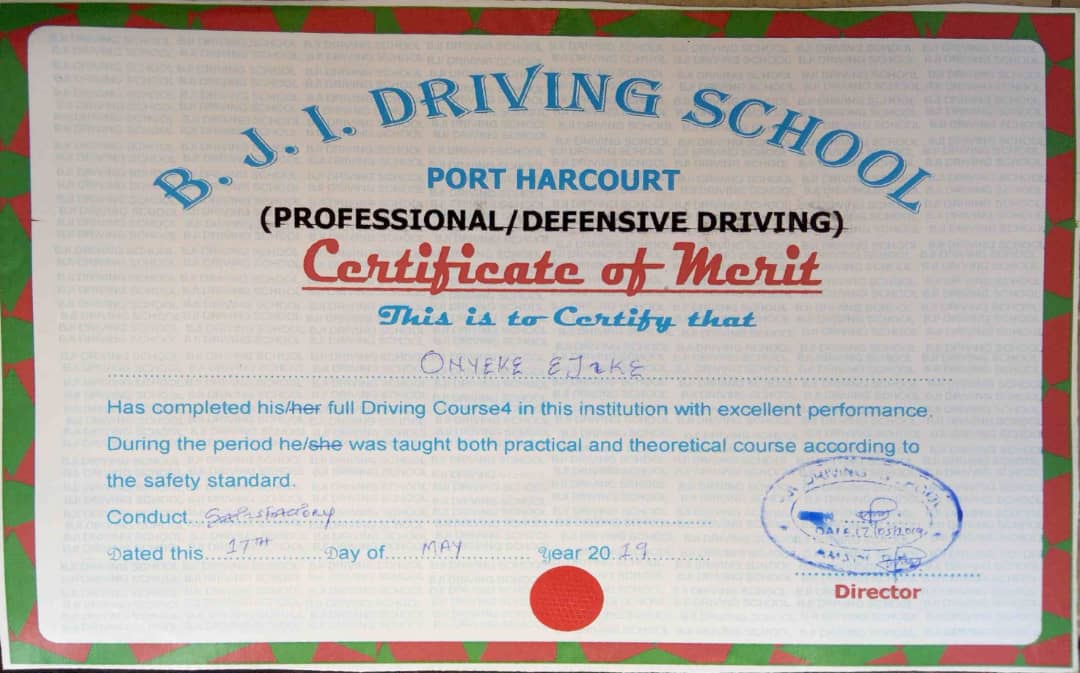 B. J. I. DRIVING SCHOOL
PORT HARCOURT
(PROFESSIONAL/DEFENSIVE DRIVING)
Certificate of Merit
This is to Certify that
ONYEKE EJIKE
Has completed his/her full Driving Course4 in this institution with excellent performance.
During the period he/she was taught both practical and theoretical course according to
the safety standard.
Conduct Satisfactory
Dated this 17TH Day of MAY Year 2019
DRIVING
DATE
Director